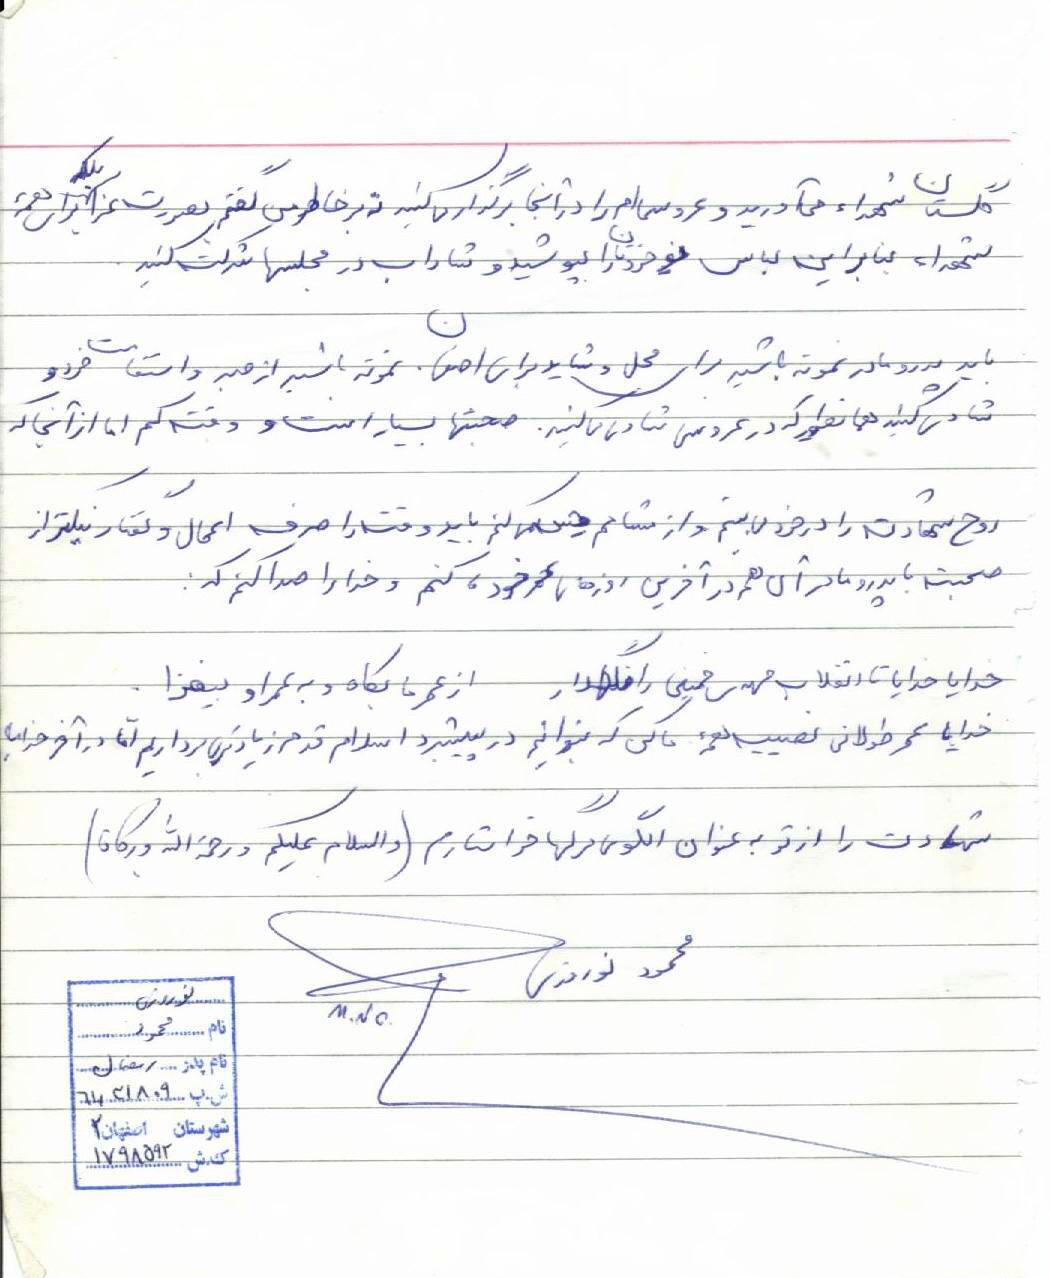 گلستان شهداء می‌آورید و عروسی‌ام را در آنجا برگذار می‌کنید نه بر خاطر من گفتم بصورت عزا بلکه برای همهٔ
شهداء، بنابراین لباس نو خودتان را بپوشید و شاداب در مجلسها شرکت کنید.
باید پدر و مادر نمونه باشید برای محل و شاید برای اصفهان. نمونه باشید از صبر و استقامت خود و
شادی کنید همانطور که در عروسی شادی می‌کنید. صحبتها بسیار است و وقت کم اما از آنجا که
روح شهادت را در خود می‌بینم و از مشامم حس می‌کنم باید وقت را صرف اعمال و گفتار نیکتر از
صحبت با پدر و مادر آن هم در آخرین روزهای عمر خود کنم و خدا را صدا کنم که:
خدایا خدایا تا انقلاب مهدی خمینی را نگهدار از عمر ما بکاه و به عمر او بیفزا.
خدایا عمر طولانی نصیب همهٔ ما کن که بتوانیم در پیشبرد اسلام قدم زیادتری برداریم اما در آخر خدایا
شهادت را از تو به عنوان الگوی مرگها خواستارم (والسلام علیکم و رحمة الله و برکاته)
محمود نوروزی
M.N.O.
نوروزی
نام محمود
نام پدر رمضان
ش.پ ۶۴۲۱۸۰۹
شهرستان اصفهان ۲
ک.ش ۱۷۹۸۵۹۲